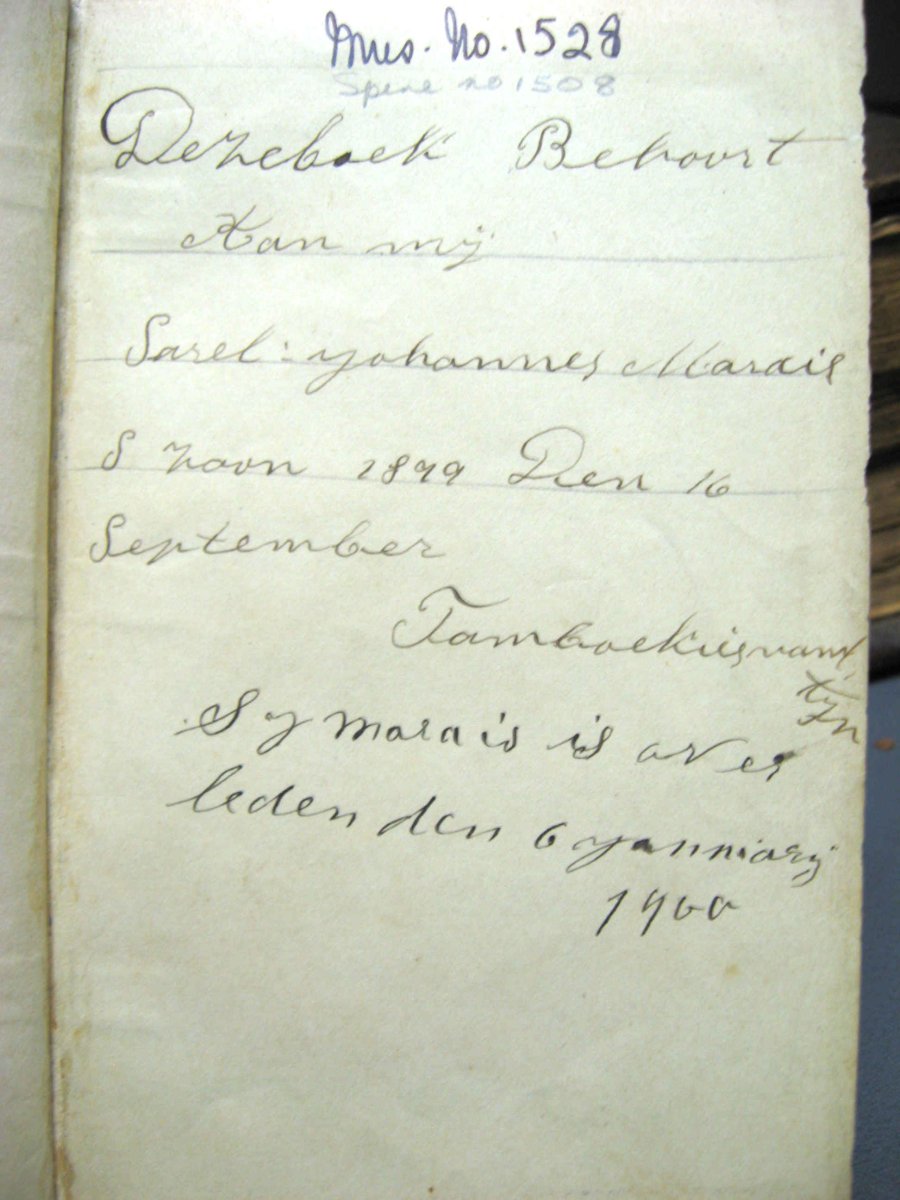 Mus. No. 1528
Spine no 1508
Dezeboek Behoort
Aan mij
Sarel: yohannes Marais
S zoon 1899 Den 16
September
Tamboekiesvant
S y marais is over
leden den 6 yanniarij
1900